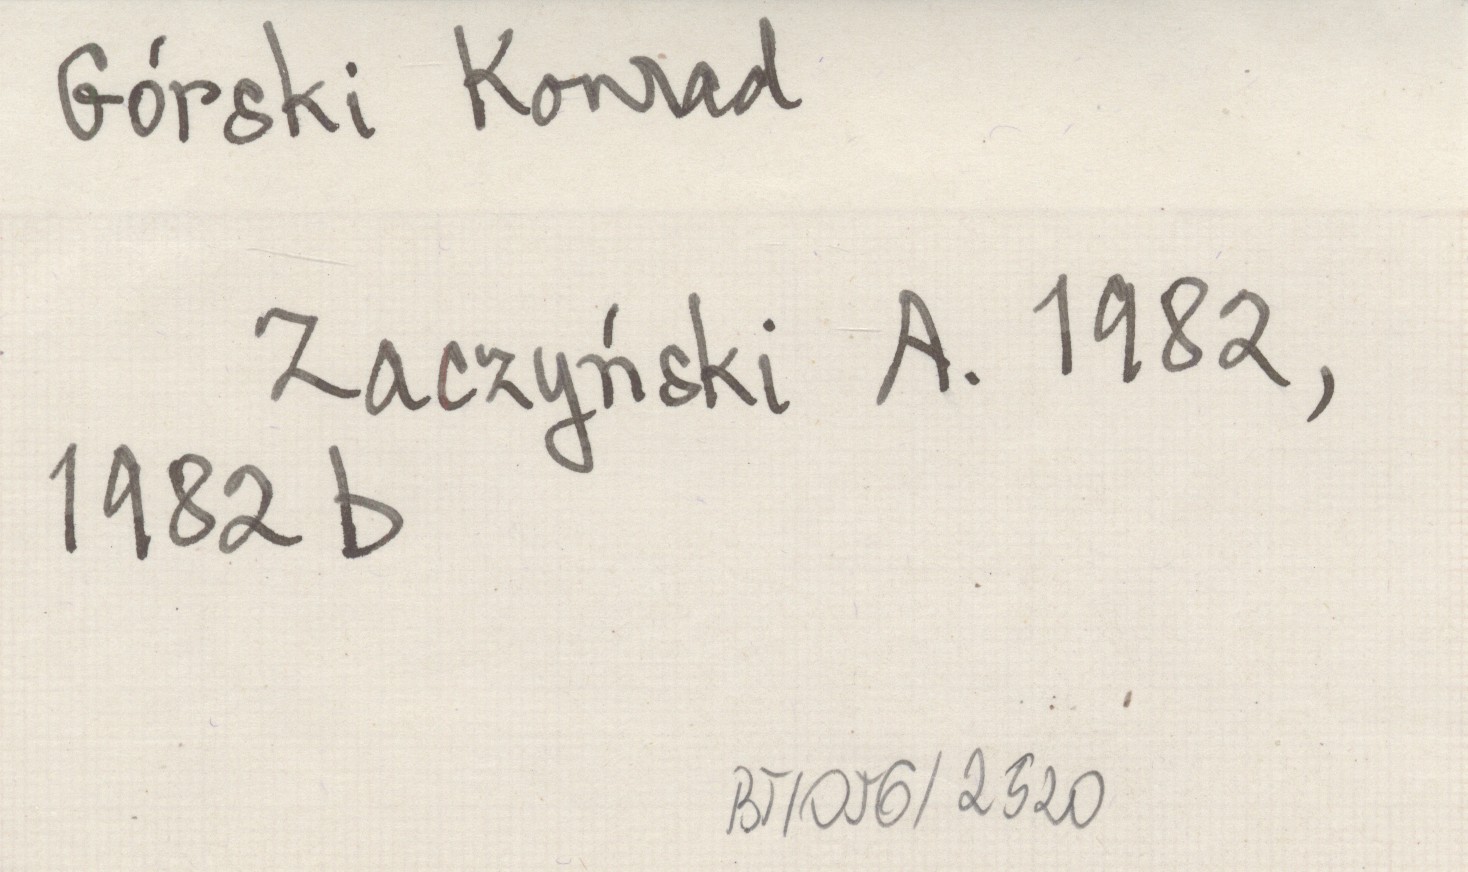 Górski Konrad
Zaczyński A. 1982,
1982 b
BT/056/2520